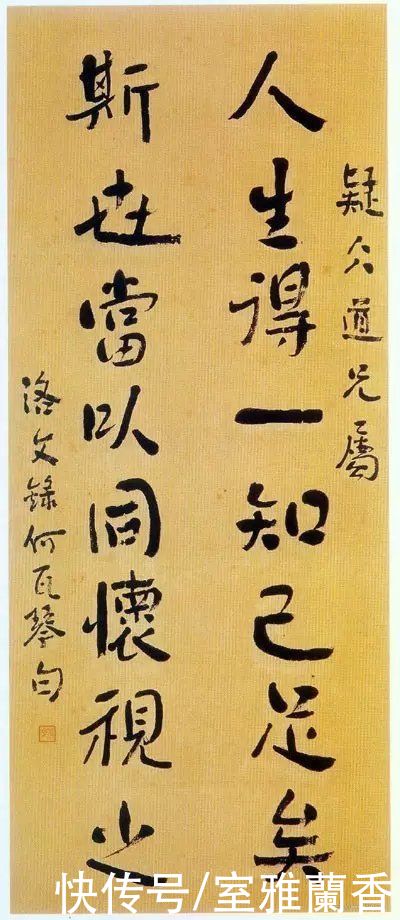 疑仌道兄屬
人生得一知己足矣
斯世當以同懷視之
洛文錄何瓦琴句
快传号/室雅蘭香